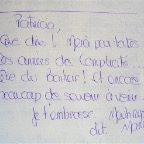 Patricia,
Que dire ! Merci pour toutes
ces années de complicité...
Que du bonheur ! Et encore
beaucoup de souvenirs à venir
Je t'embrasse.
dit